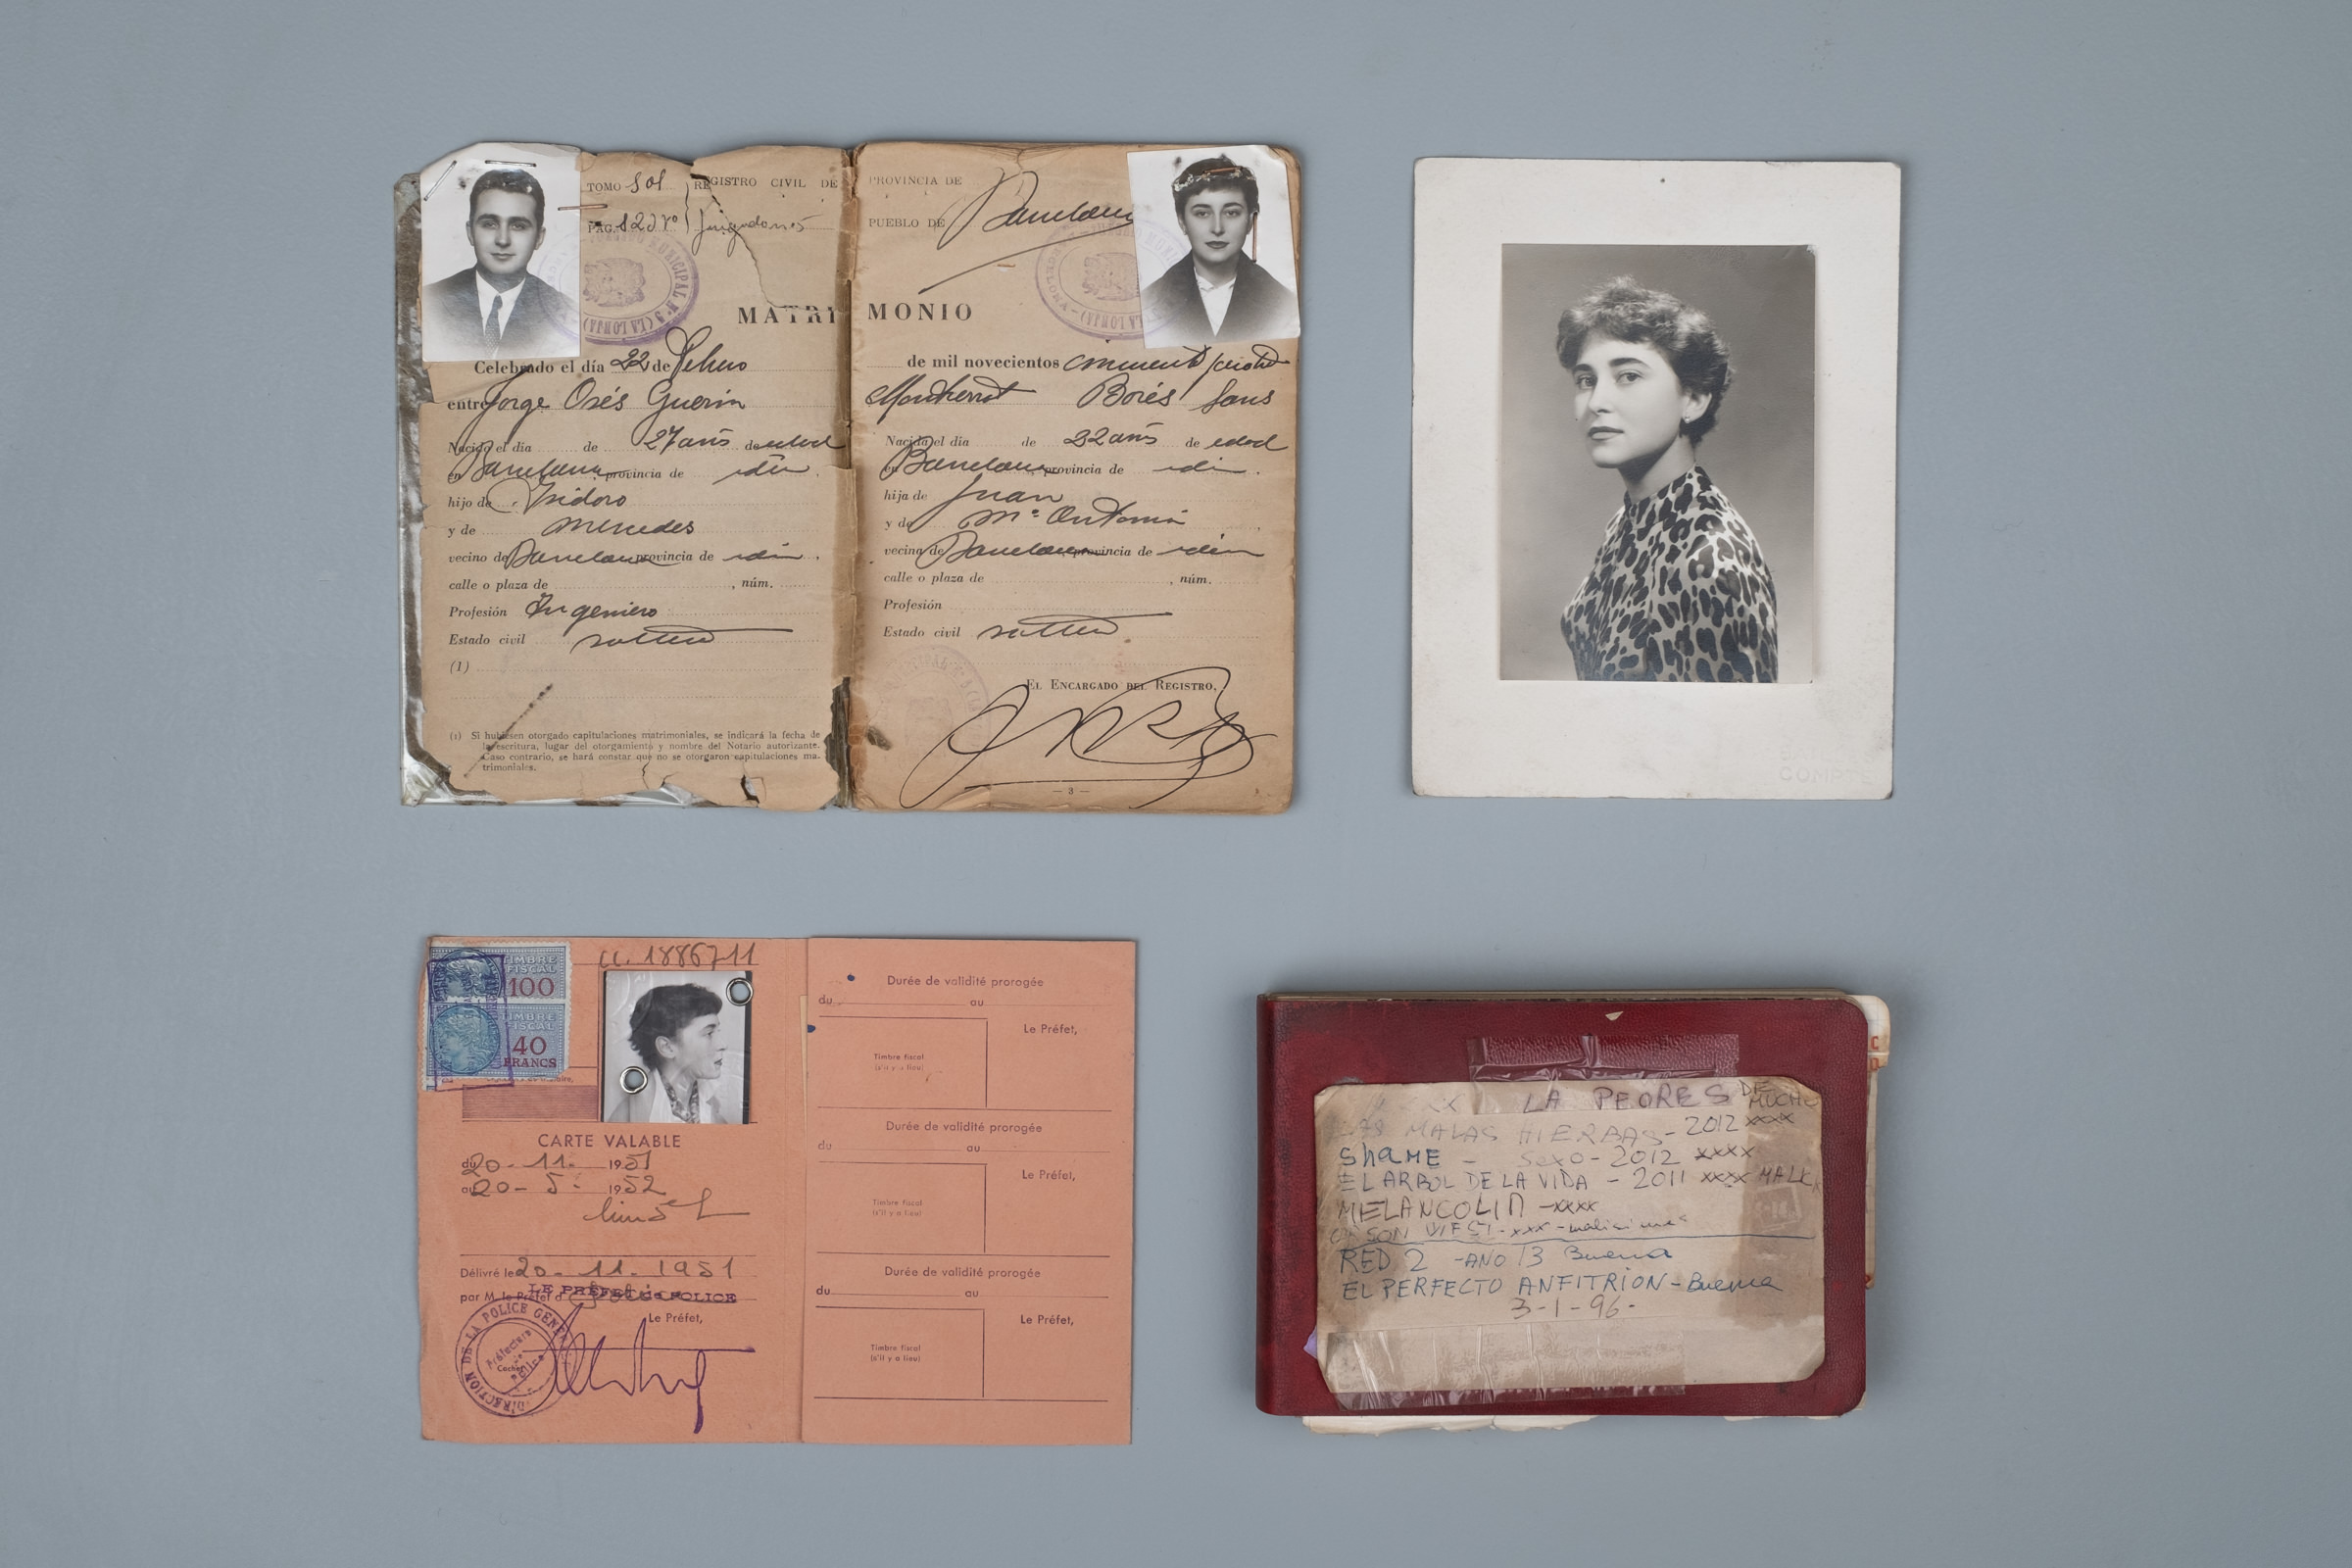 TOMO 101
REGISTRO CIVIL DE
PÁG. 120 vº
MATRI
Celebrado el día 22 de Febrero
entre Jorge Osés Guerin
Nacido el día de 27 años de edad
en Barcelona provincia de idem.
hijo de Isidoro
y de Mercedes
vecino de Barcelona provincia de idem.
calle o plaza de , núm.
Profesión Ingeniero
Estado civil soltero
(1)
(1) Si hubiesen otorgado capitulaciones matrimoniales, se indicará la fecha de
la escritura, lugar del otorgamiento y nombre del Notario autorizante.
Caso contrario, se hará constar que no se otorgaron capitulaciones ma-
trimoniales.
PROVINCIA DE
PUEBLO DE Barcelona
MONIO
de mil novecientos cincuenta
Montserrat Borés Sans
Nacida el día de 22 años de edad
en Barcelona provincia de idem.
hija de Juan
y de Mª Antonia
vecina de Barcelona provincia de idem
calle o plaza de , núm.
Profesión
Estado civil soltera
EL ENCARGADO DEL REGISTRO,
— 3 —
MUNICIPAL Nº 5 (LA LONJA)
COMPTE
TIMBRE
FISCAL
100
TIMBRE
FISCAL
40
FRANCS
cc. 1886711
CARTE VALABLE
du 20-11- 1951
au 20-5- 1952
Délivré le 20-11-1951
par M. le Préfet d
LE PRÉFET de POLICE
Le Préfet,
DIRECTION DE LA POLICE GENE
Préfecture de Police
Cachet
Durée de validité prorogée
du au
Le Préfet,
Timbre fiscal
(s'il y a lieu)
Durée de validité prorogée
du au
Le Préfet,
Timbre fiscal
(s'il y a lieu)
Durée de validité prorogée
du au
Le Préfet,
Timbre fiscal
(s'il y a lieu)
LA PEORES DE MUCHO
MALAS HIERBAS - 2012 xxxx
ShaME - Sexo - 2012 xxxx
EL ARBOL DE LA VIDA - 2011 xxxx MALA
MELANCOLIA - xxxx
SON
RED 2 - AÑO 13 Buena
EL PERFECTO ANFITRION - Buena
3-1-96-